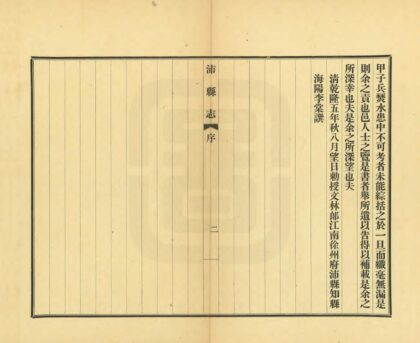 甲子兵燹水患中不可考者未能綜括之於一旦而纖毫無漏是
則余之責也邑人士之覽是書者舉所遺以告得以補載是余之
所深幸也夫是余之所深望也夫
清乾隆五年秋八月望日勅授文林郎江南徐州府沛縣知縣
海陽李棠譔
沛縣志 序 二